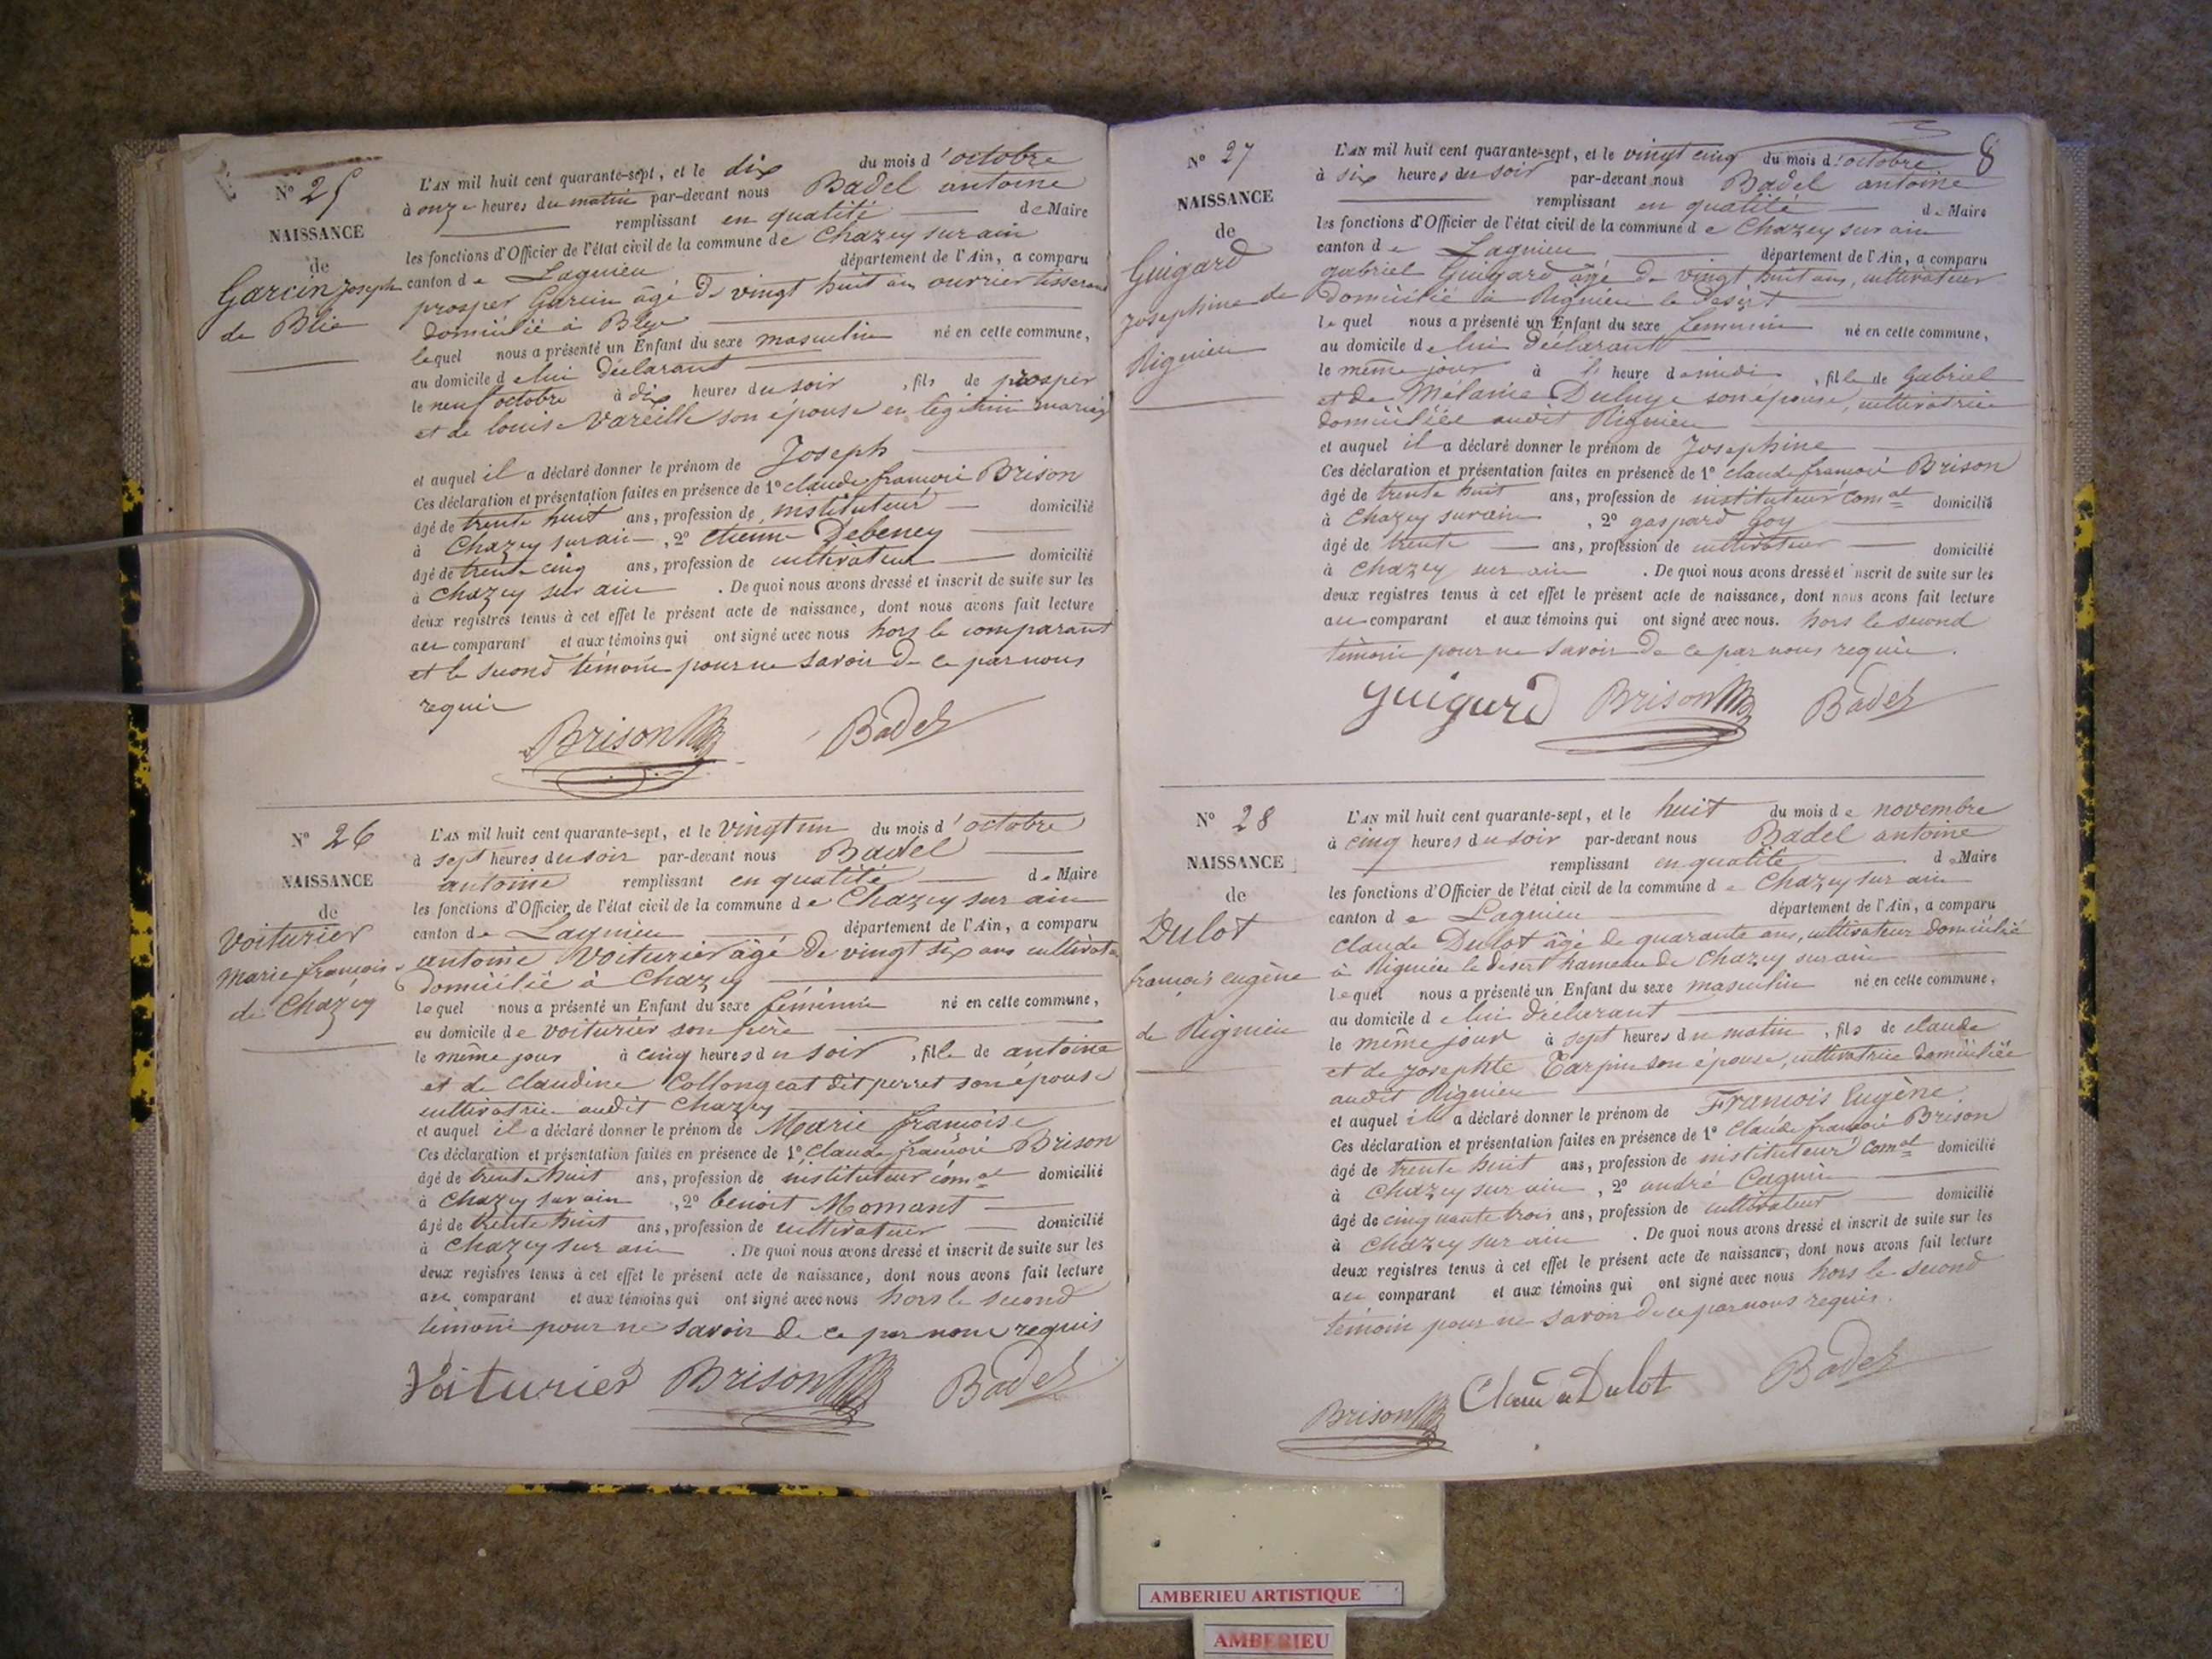 N° 25
NAISSANCE
de
Garcin Joseph
de Blie
L'AN mil huit cent quarante-sept, et le dix du mois d'octobre
à onze heures du matin par-devant nous Badel antoine
remplissant en qualité de Maire
les fonctions d'Officier de l'état civil de la commune de Chazey sur ain
canton de Lagnieu département de l'Ain, a comparu
prosper Garcin âgé de vingt huit ans ouvrier tisserand
domicilié à Blye
lequel nous a présenté un Enfant du sexe masculin né en cette commune,
au domicile de lui déclarant
le neuf octobre à dix heures du soir, fils de prosper
et de louise Vareille son épouse en légitime mariage
et auquel il a déclaré donner le prénom de Joseph
Ces déclaration et présentation faites en présence de 1° claude francois Brison
âgé de trente huit ans, profession de instituteur domicilié
à Chazey sur ain, 2° etienne Debeney
âgé de trente cinq ans, profession de cultivateur domicilié
à chazey sur ain. De quoi nous avons dressé et inscrit de suite sur les
deux registres tenus à cet effet le présent acte de naissance, dont nous avons fait lecture
au comparant et aux témoins qui ont signé avec nous hors le comparant
et le second témoin pour ne savoir de ce par nous
requis
Brison Badel
N° 26
NAISSANCE
de
Voiturier
Marie françoise
de Chazey
L'AN mil huit cent quarante-sept, et le vingt un du mois d'octobre
à sept heures du soir par-devant nous Badel
antoine remplissant en qualité de Maire
les fonctions d'Officier de l'état civil de la commune de Chazey sur ain
canton de Lagnieu département de l'Ain, a comparu
antoine Voiturier âgé de vingt six ans cultivateur
domicilié à Chazey
lequel nous a présenté un Enfant du sexe féminin né en cette commune,
au domicile de voiturier son père
le même jour à cinq heures du soir, fille de antoine
et de claudine Collongeat dit perret son épouse
cultivatrice audit Chazey
et auquel il a déclaré donner le prénom de Marie francoise
Ces déclaration et présentation faites en présence de 1° Claude francois Brison
âgé de trente huit ans, profession de instituteur comal domicilié
à Chazey sur ain, 2° benoit Momant
âgé de trente huit ans, profession de cultivateur domicilié
à Chazey sur ain. De quoi nous avons dressé et inscrit de suite sur les
deux registres tenus à cet effet le présent acte de naissance, dont nous avons fait lecture
au comparant et aux témoins qui ont signé avec nous hors le second
témoin pour ne savoir de ce par nous requis
Voiturier Brison Badel
8
N° 27
NAISSANCE
de
Guigard
josephine de
Rignieu
L'AN mil huit cent quarante-sept, et le vingt cinq du mois d'octobre
à six heures du soir par-devant nous Badel antoine
remplissant en qualité de Maire
les fonctions d'Officier de l'état civil de la commune de Chazey sur ain
canton de Lagnieu département de l'Ain, a comparu
gabriel Guigard âgé de vingt huit ans, cultivateur
domicilié à Rignieu le Désert
lequel nous a présenté un Enfant du sexe feminin né en cette commune,
au domicile de lui déclarant
le même jour à heure de midi, fille de Gabriel
et de Mélanie son épouse, cultivatrice
domiciliée audit Rignieu
et auquel il a déclaré donner le prénom de Josephine
Ces déclaration et présentation faites en présence de 1° claude francois Brison
âgé de trente huit ans, profession de instituteur comal domicilié
à Chazey sur ain, 2° gaspard Goy
âgé de trente ans, profession de cultivateur domicilié
à Chazey sur ain. De quoi nous avons dressé et inscrit de suite sur les
deux registres tenus à cet effet le présent acte de naissance, dont nous avons fait lecture
au comparant et aux témoins qui ont signé avec nous. hors le second
témoin pour ne savoir de ce par nous requis.
guigard Brison Badel
N° 28
NAISSANCE
de
Dulot
françois eugène
de Rignieu
L'AN mil huit cent quarante-sept, et le huit du mois de novembre
à cinq heures du soir par-devant nous Badel antoine
remplissant en qualité de Maire
les fonctions d'Officier de l'état civil de la commune de Chazey sur ain
canton de Lagnieu département de l'Ain, a comparu
claude Dulot âgé de quarante ans, cultivateur domicilié
à Rignieu le désert hameau de Chazey sur ain
lequel nous a présenté un Enfant du sexe masculin né en cette commune,
au domicile de lui déclarant
le même jour à sept heures du matin, fils de claude
et de josephte Carpin son épouse, cultivatrice domiciliée
audit Rignieu
et auquel il a déclaré donner le prénom de Francois Eugène
Ces déclaration et présentation faites en présence de 1° Claude francois Brison
âgé de trente huit ans, profession de instituteur comal domicilié
à Chazey sur ain, 2° andré Cugnin
âgé de cinquante trois ans, profession de cultivateur domicilié
à chazey sur ain. De quoi nous avons dressé et inscrit de suite sur les
deux registres tenus à cet effet le présent acte de naissance, dont nous avons fait lecture
au comparant et aux témoins qui ont signé avec nous hors le second
témoin pour ne savoir de ce par nous requis.
Brison Claude Dulot Badel
AMBERIEU ARTISTIQUE
AMBERIEU